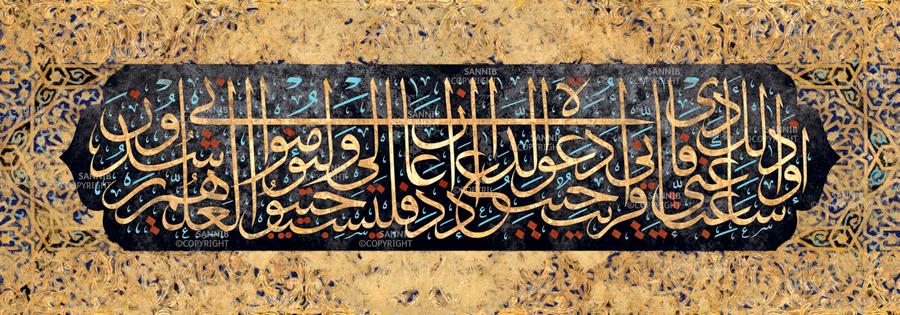 وإذا سألك عبادي عني فإني قريب أجيب دعوة الداع إذا دعان فليستجيبوا لي وليؤمنوا بي لعلهم يرشدون
SANNIB
©COPYRIGHT
SANNIB
©COPYRIGHT
SANNIB
©COPYRIGHT
SANNIB
©COPYRIGHT